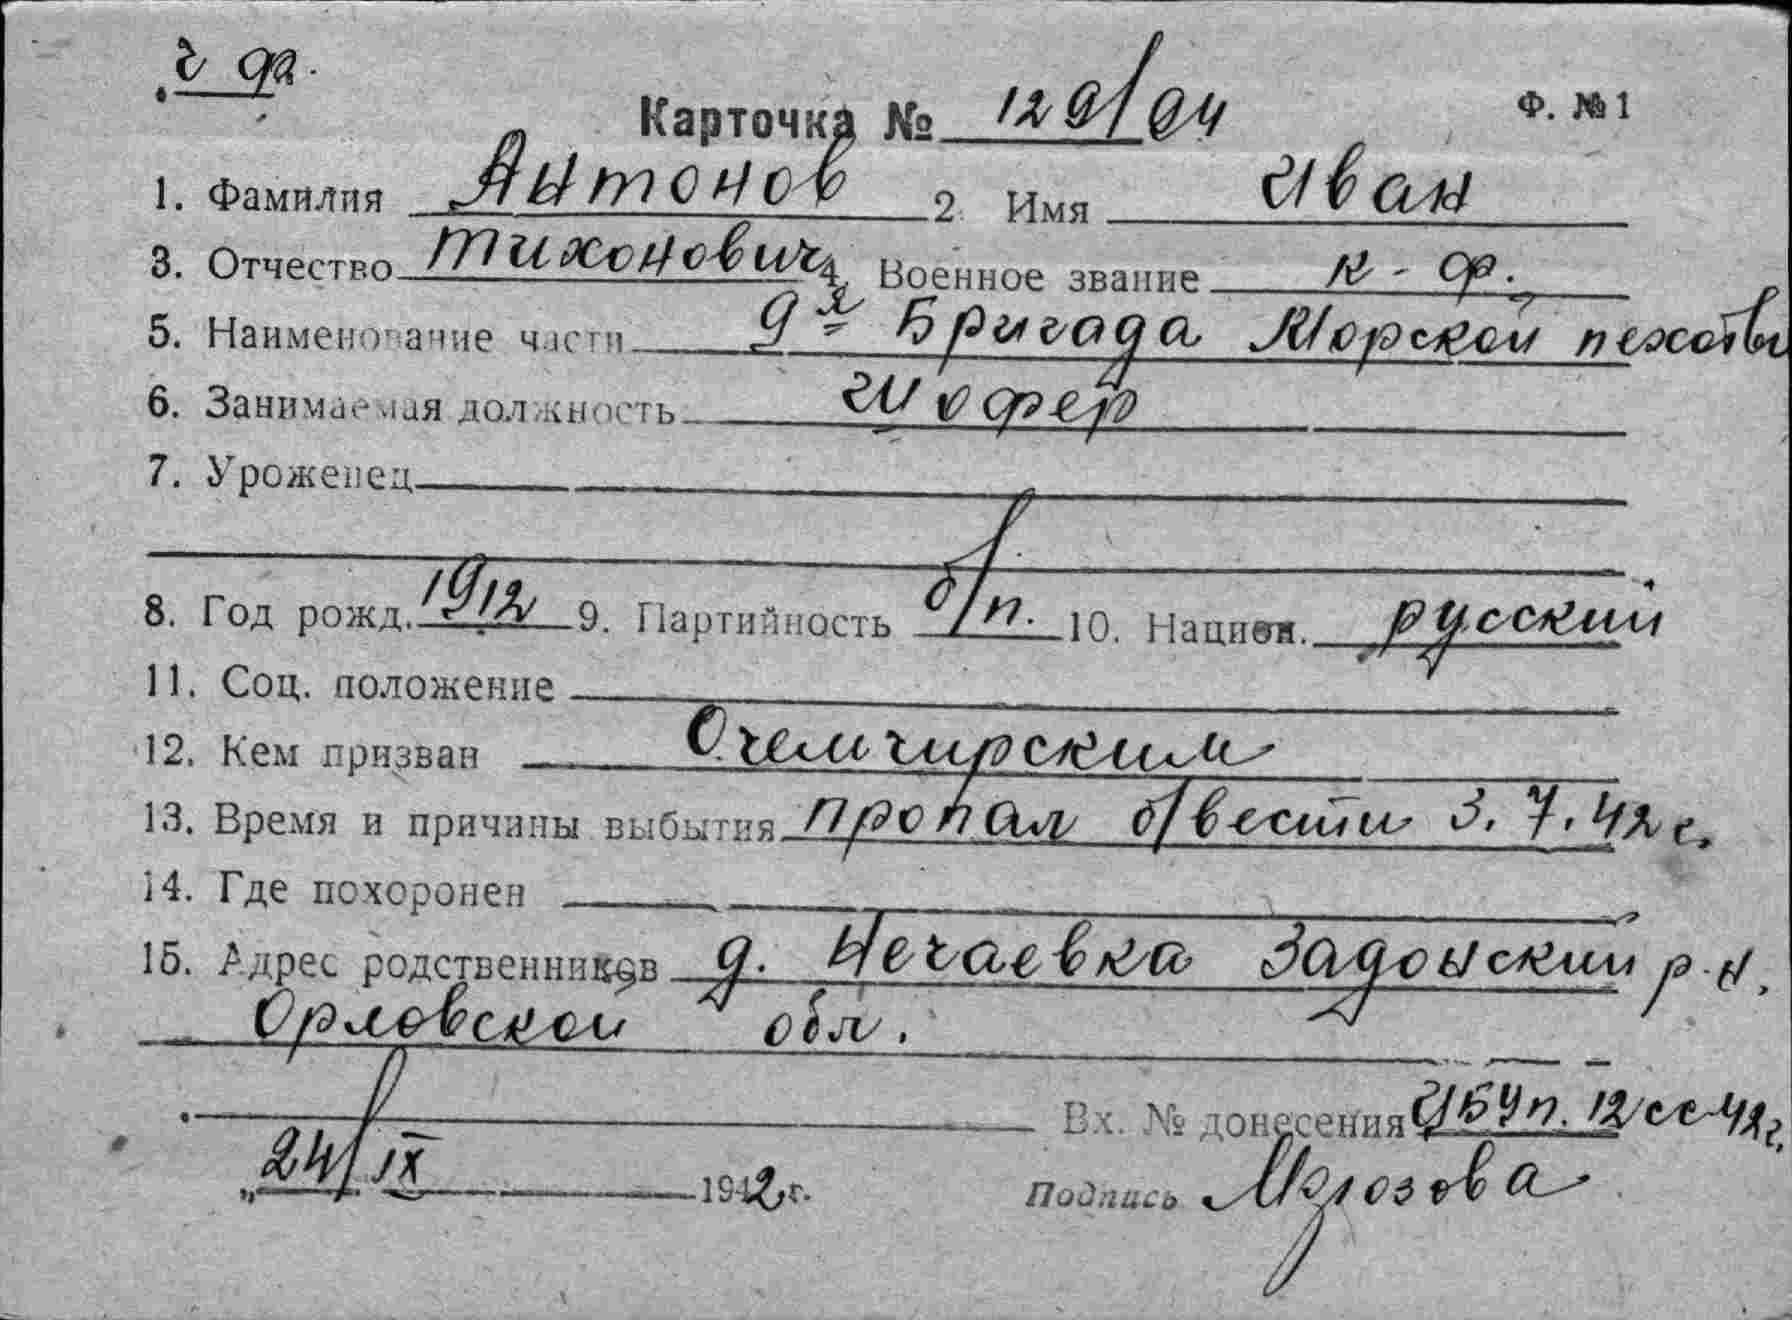 Карточка № 129/94 Ф. №1
1. Фамилия Антонов 2. Имя Иван
3. Отчество Тихонович 4. Военное звание к-ф.
5. Наименование части 9я Бригада Морской пехоты
6. Занимаемая должность шофер
7. Уроженец
8. Год рожд. 1912 9. Партийность б/п. 10. Национ. русский
11. Соц. положение
12. Кем призван Очемчирским
13. Время и причины выбытия пропал б/вести 3.7.42 г.
14. Где похоронен
15. Адрес родственников д. Нечаевка Задонский р-н.
Орловской обл.
Вх. № донесения 12сс-42г.
„24/IX 1942 г. Подпись Морозова